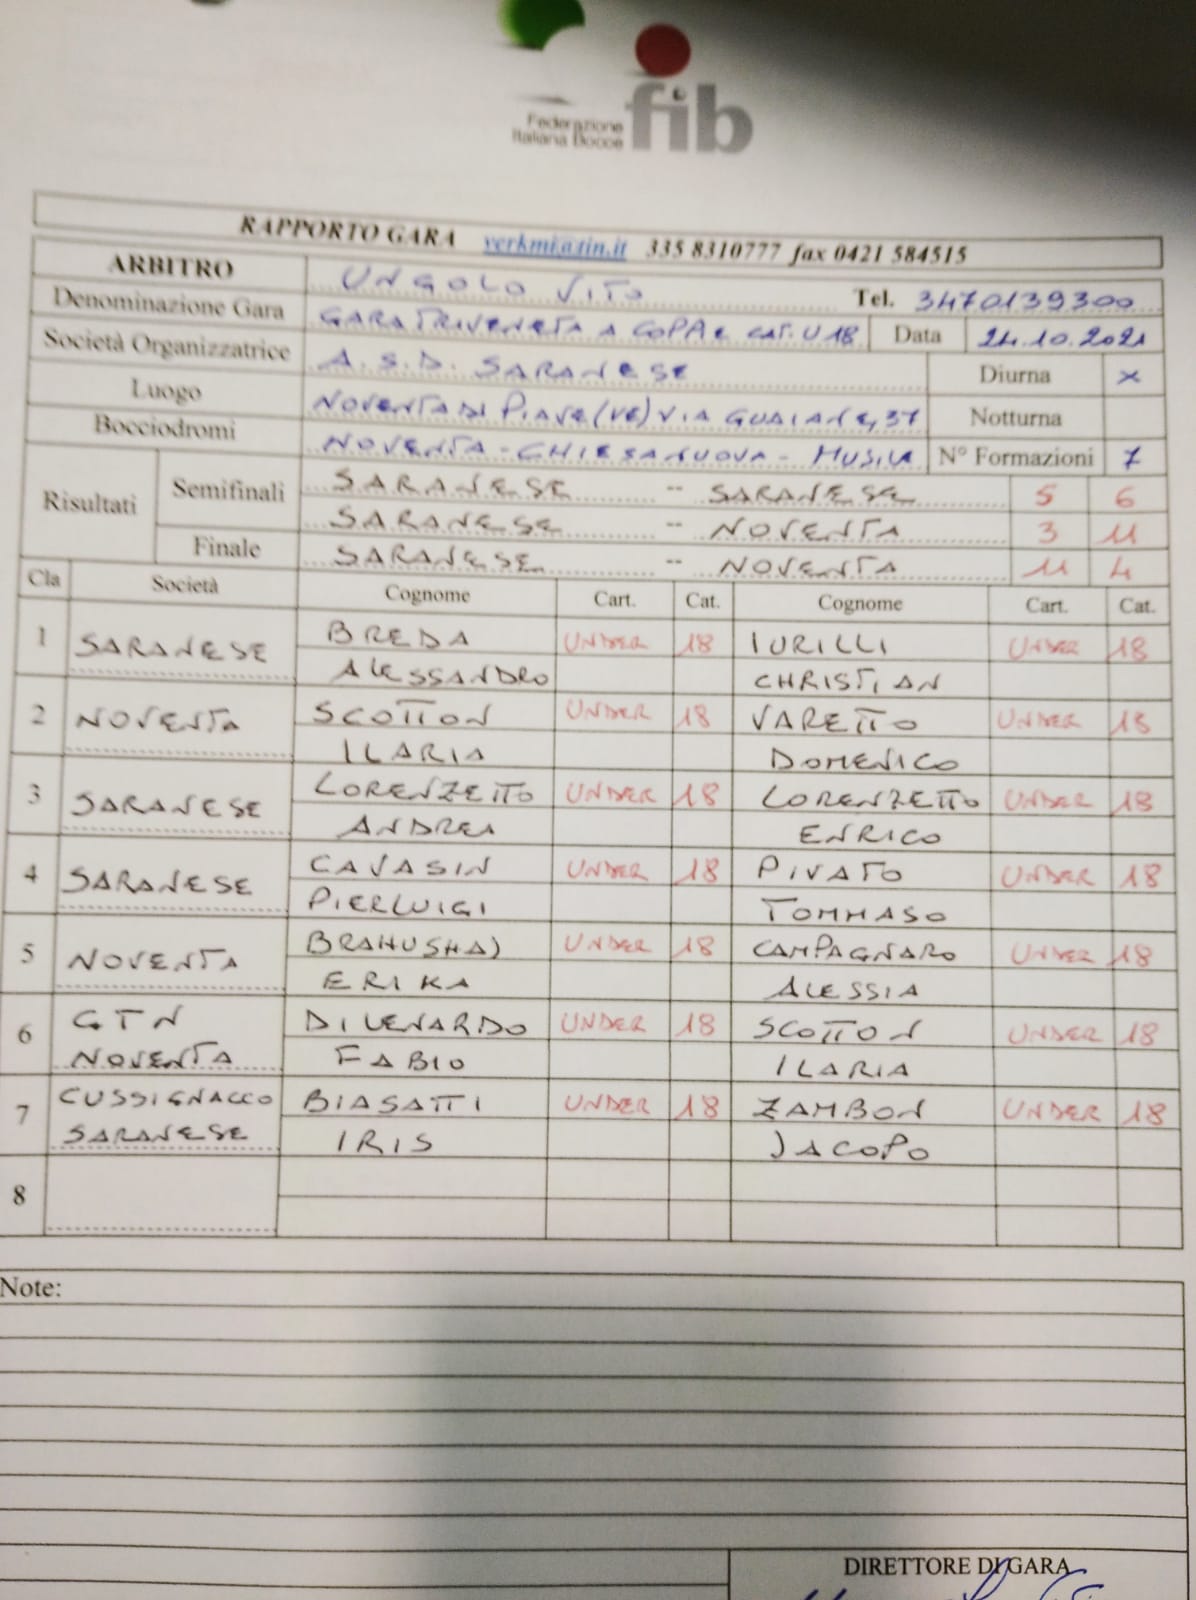 Federazione
Italiana Bocce
fib
RAPPORTO GARA 335 8310777 fax 0421 584515
ARBITRO UNGOLO VITO Tel. 3470139300
Denominazione Gara GARA TRIVENETA A COPPIE CAT. U 18 Data 24.10.2021
Società Organizzatrice A.S.D. SARANESE Diurna X
Luogo NOVENTA DI PIAVE (VE) VIA GUAIANE, 37 Notturna
Bocciodromi NOVENTA - CHIESANUOVA - MUSILE N° Formazioni 7
Risultati Semifinali SARANESE -- SARANESE 5 6
SARANESE -- NOVENTA 3 11
Finale SARANESE -- NOVENTA 11 4
Cla Società Cognome Cart. Cat. Cognome Cart. Cat.
1 SARANESE BREDA UNDER 18 IURILLI UNDER 18
ALESSANDRO CHRISTIAN
2 NOVENTA SCOTTON UNDER 18 VARETTO UNDER 18
ILARIA DOMENICO
3 SARANESE LORENZETTO UNDER 18 LORENZETTO UNDER 18
ANDREA ENRICO
4 SARANESE CAVASIN UNDER 18 PIVATO UNDER 18
PIERLUIGI TOMMASO
5 NOVENTA BRAHUSHAJ UNDER 18 CAMPAGNARO UNDER 18
ERIKA ALESSIA
6 GTN DI LENARDO UNDER 18 SCOTTON UNDER 18
NOVENTA FABIO ILARIA
7 CUSSIGNACCO BIASATTI UNDER 18 ZAMBON UNDER 18
SARANESE IRIS JACOPO
8
Note:
DIRETTORE DI GARA